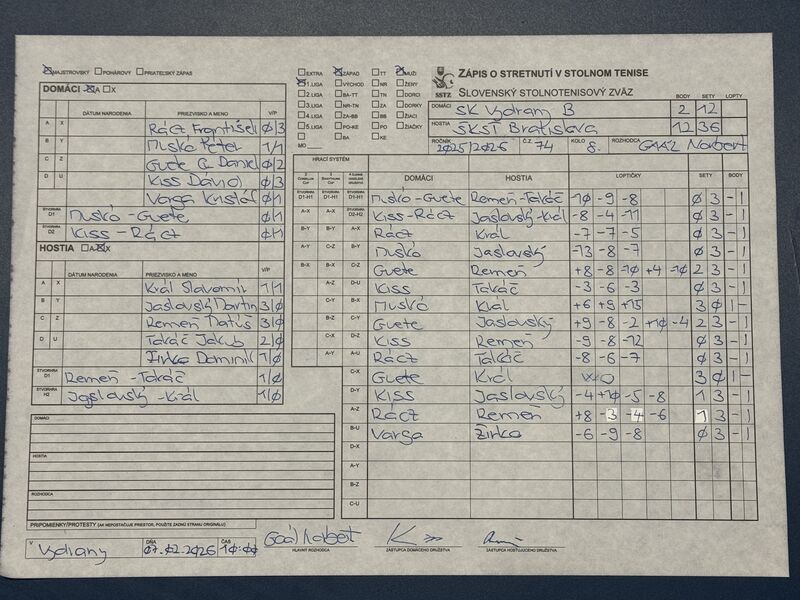 MAJSTROVSKÝ POHÁROVÝ PRIATEĽSKÝ ZÁPAS
EXTRA ZÁPAD TT MUŽI
1.LIGA VÝCHOD NR ŽENY
2.LIGA BA-TT TN DORCI
3.LIGA NR-TN ZA DORKY
4.LIGA ZA-BB BB ŽIACI
5.LIGA PO-KE PO ŽIAČKY
BA KE
MO
SSTZ
ZÁPIS O STRETNUTÍ V STOLNOM TENISE
SLOVENSKÝ STOLNOTENISOVÝ ZVÄZ
BODY SETY LOPTY
DOMÁCI SK Vydrany B 2 12
HOSTIA ŠKST Bratislava 12 36
ROČNÍK 2025/2026 Č.Z. 74 KOLO 8. ROZHODCA GAÁL Norbert
DOMÁCI A X
DÁTUM NARODENIA PRIEZVISKO A MENO V/P
A X Rácz František 0/3
B Y Muskó Peter 1/1
C Z Guete G. Daniel 0/2
D U Kiss Dávid 0/3
Varga Kristáf 0/1
ŠTVORHRA D1 Muskó - Guete 0/1
ŠTVORHRA D2 Kiss - Rácz 0/1
HOSTIA A X
DÁTUM NARODENIA PRIEZVISKO A MENO V/P
A X Král Slavomír 1/1
B Y Jaslovský Martin 3/0
C Z Remeň Matúš 3/0
D U Takáč Jakub 2/0
Žirko Dominik 1/0
ŠTVORHRA D1 Remeň - Takáč 1/0
ŠTVORHRA H2 Jaslovský - Král 1/0
DOMÁCI
HOSTIA
ROZHODCA
PRIPOMIENKY/PROTESTY (AK NEPOSTAČUJE PRIESTOR, POUŽITE ZADNÚ STRANU ORIGINÁLU)
HRACÍ SYSTÉM DOMÁCI HOSTIA LOPTIČKY SETY BODY
ŠTVORHRA D1-H1 ŠTVORHRA D1-H1 ŠTVORHRA D1-H1 Muskó-Guete Remeň-Takáč -10 -9 -8 0 3 - 1
A-X A-X ŠTVORHRA D2-H2 Kiss-Rácz Jaslovský-Král -8 -4 -11 0 3 - 1
B-Y B-Y A-X Rácz Král -7 -7 -5 0 3 - 1
A-Y C-Z B-Y Muskó Jaslovský -13 -8 -7 0 3 - 1
B-X B-X C-Z Guete Remeň +8 -8 -10 +4 -10 2 3 - 1
A-Z D-U Kiss Takáč -3 -6 -3 0 3 - 1
C-Y B-X Muskó Král +6 +9 +15 3 0 1 -
B-Z C-Y Guete Jaslovský +9 -8 -2 +10 -4 2 3 - 1
C-X D-Z Kiss Remeň -9 -8 -12 0 3 - 1
A-Y A-U Rácz Takáč -8 -6 -7 0 3 - 1
C-X Guete Král WO 3 0 1 -
D-Y Kiss Jaslovský -4 +10 -5 -8 1 3 - 1
A-Z Rácz Remeň +8 -3 -4 -6 1 3 - 1
B-U Varga Žirko -6 -9 -8 0 3 - 1
D-X
A-Y
B-Z
C-U
V Vydrany DŇA 07.02.2026 ČAS 10:00
Gaál Norbert
HLAVNÝ ROZHODCA ZÁSTUPCA DOMÁCEHO DRUŽSTVA ZÁSTUPCA HOSŤUJÚCEHO DRUŽSTVA